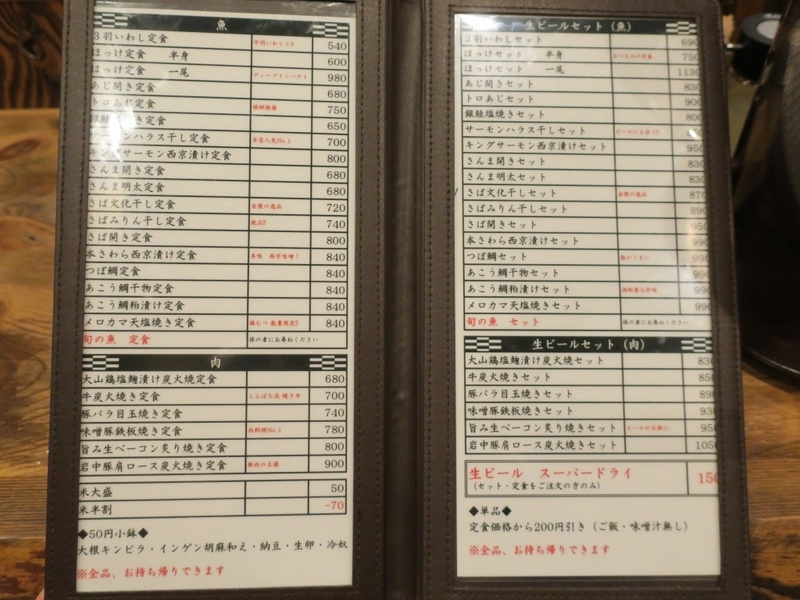 魚
3羽いわし定食 540
ほっけ定食 半身 600
ほっけ定食 一尾 980
あじ開き定食 680
トロあじ定食 750
銀鮭塩焼き定食 650
ンハラス干し定食 当店人気No.1 700
キングサーモン西京漬け定食 800
さんま開き定食 680
さんま明太定食 680
さば文化干し定食 自慢の逸品 720
さばみりん干し定食 絶品!! 740
さば開き定食 800
本さわら西京漬け定食 840
つぼ鯛定食 840
あこう鯛干物定食 840
あこう鯛粕漬け定食 840
メロカマ天塩焼き定食 840
旬の魚 定食 係の者にお尋ねください
肉
大山鶏塩麹漬け炭火焼定食 680
牛炭火焼き定食 700
豚バラ目玉焼き定食 740
味噌豚鉄板焼き定食 780
旨み生ベーコン炙り焼き定食 800
岩中豚肩ロース炭火焼定食 900
米大盛 50
米半割 -70
◆50円小鉢◆
大根キンピラ・インゲン胡麻和え・納豆・生卵・冷奴
※全品、お持ち帰りできます
生ビールセット（魚）
3羽いわしセット
ほっけセット 半身
ほっけセット 一尾
あじ開きセット
トロあじセット
銀鮭塩焼きセット
サーモンハラス干しセット
キングサーモン西京漬けセット
さんま開きセット
さんま明太セット
さば文化干しセット 自慢の逸品
さばみりん干しセット
さば開きセット
本さわら西京漬けセット
つぼ鯛セット
あこう鯛干物セット
あこう鯛粕漬けセット
メロカマ天塩焼きセット
旬の魚 セット 係の者にお尋ねください
生ビールセット（肉）
大山鶏塩麹漬け炭火焼セット
牛炭火焼きセット
豚バラ目玉焼きセット
味噌豚鉄板焼きセット
旨み生ベーコン炙り焼きセット
岩中豚肩ロース炭火焼セット
生ビール スーパードライ
（セット・定食をご注文の方のみ）
◆単品◆
定食価格から200円引き（ご飯・味噌汁無し）
※全品、お持ち帰りできます